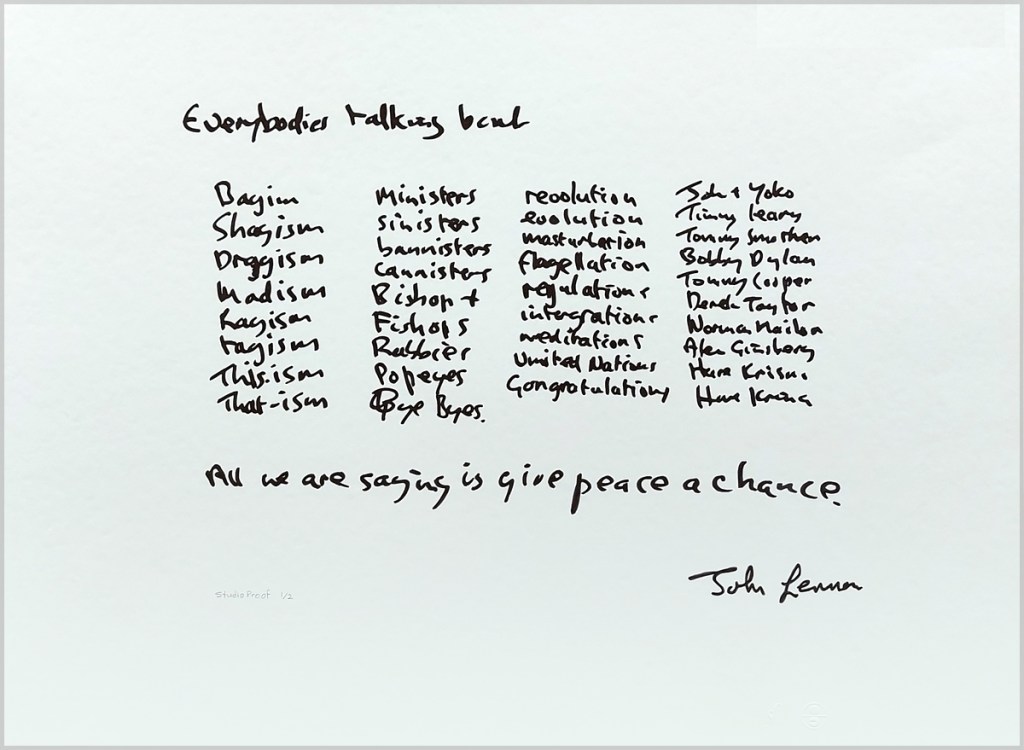 Everybodies talking bout
Bagism
Shagism
Dragism
Madism
Ragism
tagism
This.ism
That-ism
Ministers
sinisters
bannisters
cannisters
Bishop +
Fishops
Rabbies
Popeyes
Bye Byes.
revolution
evolution
masturbation
flagellation
regulations
intergrations
meditations
United Nations
Congratulations
John + Yoko
Timmy Leary
Tommy Smothen
Bobby Dylan
Tommy Cooper
Derek Taylor
Norman Mailor
Alen Ginsberg
Hare Krisna
Hare Krisna
All we are saying is give peace a chance.
John Lennon
Studio Proof 1/2